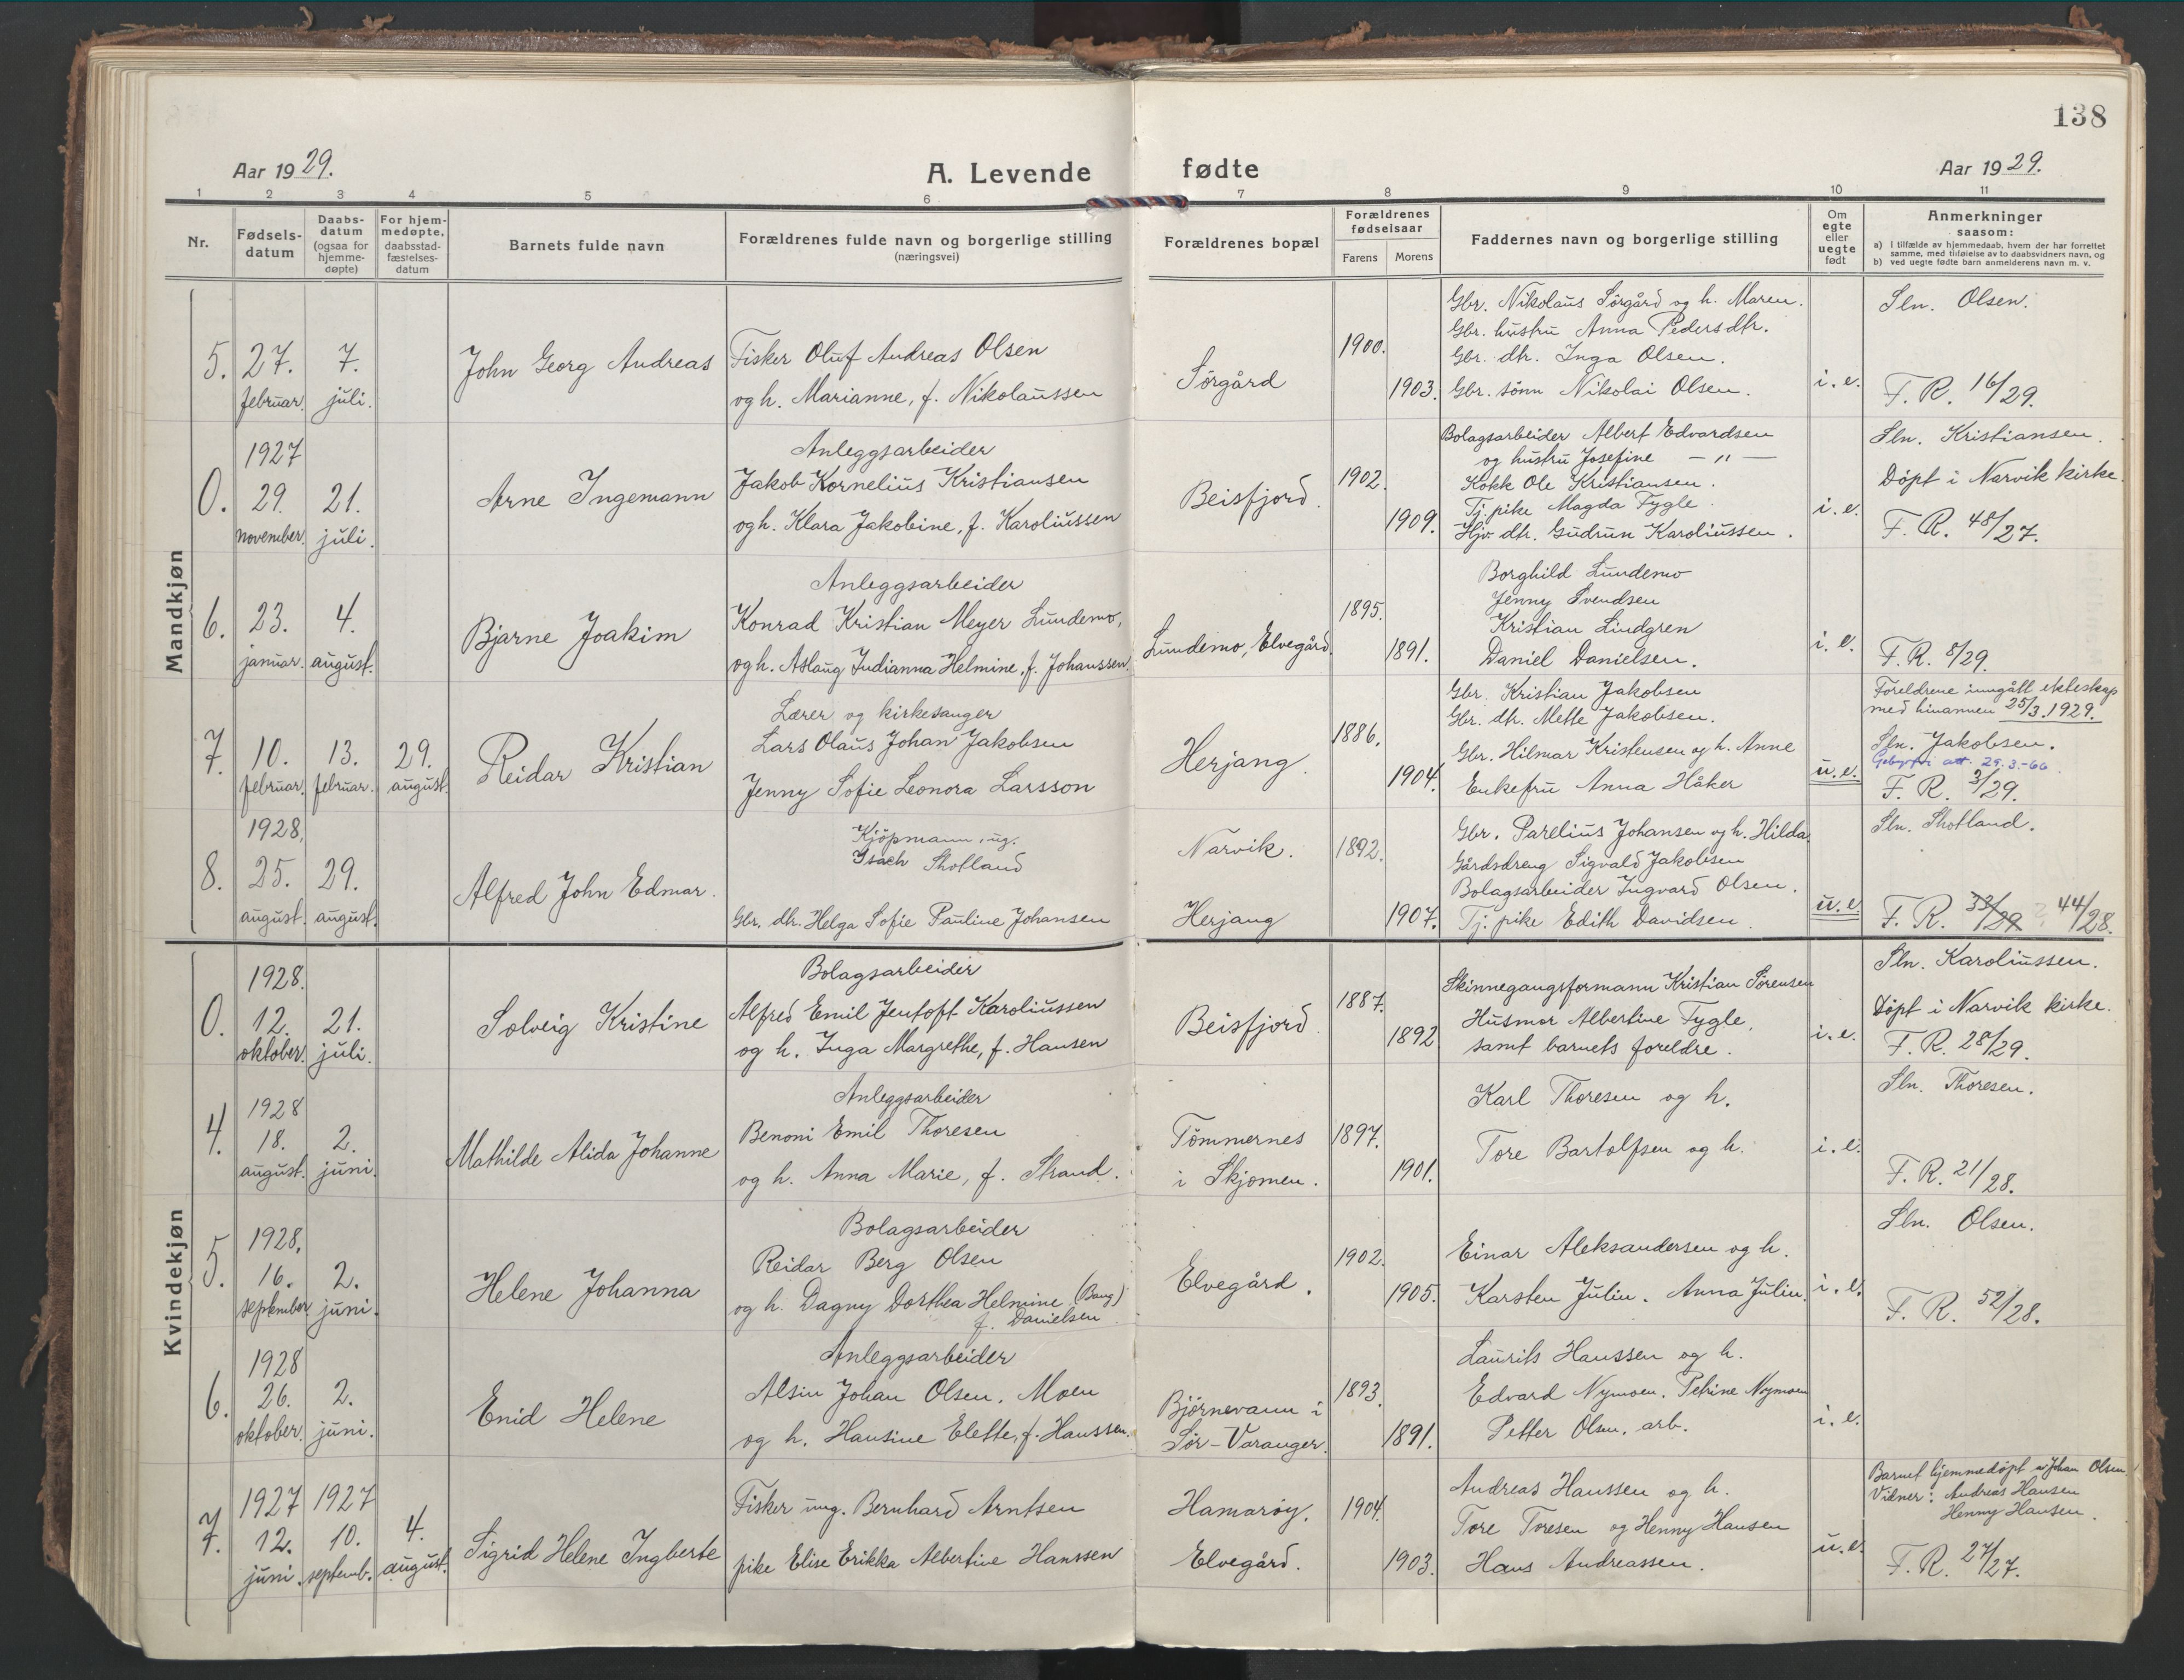 138
Aar 1929.
A. Levende fødte
Aar 1929.
1 2 3 4 5 6 7 8 9 10 11
Nr.
Fødsels-
datum
Daabs-
datum
(ogsaa for
hjemme-
døpte)
For hjem-
medøpte,
daabsstad-
fæstelses-
datum
Barnets fulde navn
Forældrenes fulde navn og borgerlige stilling
(næringsvei)
Forældrenes bopæl
Forældrenes
fødselsaar
Farens Morens
Faddernes navn og borgerlige stilling
Om
egte
eller
uegte
født
Anmerkninger
saasom:
a) i tilfælde av hjemmedaab, hvem der har forrettet
samme, med tilføielse av to daabsvidners navn, og
b) ved uegte fødte barn anmelderens navn m. v.
Mandkjøn
5. 27. februar. 7. juli.
John Georg Andreas
Fisker Oluf Andreas Olsen
og h. Marianne, f. Nikolaussen
Sörgård
1900.
1903.
Gbr. Nikolaus Sörgård og h. Maren.
Gbr. hustru Anna Pedersdtr.
Gbr. dtr. Inga Olsen.
Gbr. sönn Nikolai Olsen.
i. e.
Sln. Olsen.
F. R. 16/29.
1927
0. 29. november. 21. juli.
Arne Ingemann
Anleggsarbeider
Jakob Kornelius Kristiansen
og h. Klara Jakobine, f. Karoliussen
Beisfjord.
1902.
1909.
Bolagsarbeider Albert Edvardsen
og hustru Josefine — " —
Kokk Ole Kristiansen.
Tj. pike Magda Fygle.
Hjv dtr. Gudrun Karoliussen.
i. e.
Sln. Kristiansen.
Döpt i Narvik kirke.
F. R. 48/27.
6. 23. januar. 4. august.
Bjarne Joakim
Anleggsarbeider
Konrad Kristian Meyer Lundemo,
og h. Aslaug Indianna Helmine, f. Johanssen.
Lundemo, Elvegård.
1895.
1891.
Borghild Lundemo
Jenny Svendsen
Kristian Lindgren
Daniel Danielsen.
i. e.
F. R. 8/29.
7. 10. februar. 13. februar. 29. august.
Reidar Kristian
Lærer og kirkesanger
Lars Olaus Johan Jakobsen
Jenny Sofie Leonora Larsson
Herjang.
1886.
1904.
Gbr. Kristian Jakobsen
Gbr. dtr. Mette Jakobsen.
Gbr. Hilmar Kristensen og h. Anne
Enkefru Anna Håker
u. e.
Foreldrene inngått ekteskap
med hinannen 25/3.1929.
Sln. Jakobsen.
Gebyrfri att. 29.3.-66
F. R. 3/29.
1928,
8. 25. august. 29. august.
Alfred John Edmar.
Kjöpmann, ug.
Isach Shotland
Gbr. dtr. Helga Sofie Pauline Johansen
Narvik.
Herjang
1892.
1907.
Gbr. Parelius Johansen og h. Hilda.
Gårdsdreng Sigvald Jakobsen
Bolagsarbeider Ingvard Olsen.
Tj. pike Edith Davidsen.
u. e
Sln. Shotland.
F. R. 33/29 ? 44/28.
Kvindekjøn
1928.
0. 12. oktober. 21. juli.
Solveig Kristine
Bolagsarbeider
Alfred Emil Jentoft Karoliussen
og h. Inga Margrethe, f. Hansen
Beisfjord.
1887.
1892
Skinnegangsformann Kristian Sörensen
Husmor Albertine Fygle,
samt barnets foreldre.
i. e.
Sln. Karoliussen.
Döpt i Narvik kirke.
F. R. 28/29.
1928
4. 18. august. 2. juni.
Mathilde Alida Johanne
Anleggsarbeider
Benoni Emil Thoresen
og h. Anna Marie, f. Strand.
Tömmernes
i Skjomen.
1897.
1901.
Karl Thoresen og h.
Tore Bartolfsen og h.
i. e.
Sln. Thoresen.
F. R. 21/28.
1928,
5. 16. september 2. juni.
Helene Johanna
Bolagsarbeider
Reidar Berg Olsen
og h. Dagny Dorthea Helmine (Bang)
f. Danielsen
Elvegård.
1902.
1905.
Einar Aleksandersen og h.
Karsten Juliu. Anna Juliu.
i. e.
Sln. Olsen.
F. R. 52/28.
1928
6. 26. oktober. 2. juni.
Enid Helene
Anleggsarbeider
Alsin Johan Olsen, Moen
og h. Hansine Elette, f. Hanssen.
Björnevann i
Sör-Varanger.
1893.
1891.
Laurits Hanssen og h.
Edvard Nymoen. Petrine Nymoen
Petter Olsen, arb.
i. e.
1927 1927
7. 12. juni. 10. septemb. 4. august.
Sigrid Helene Ingberte
Fisker ung. Bernhard Arntsen
pike Elise Erikka Albertine Hanssen
Hamaröy.
Elvegård.
1904.
1903.
Andreas Hanssen og h.
Tore Toresen og Henny Hansen
Hans Andreassen.
u. e.
Barnet hjemmedöpt av Johan Olsen
Vidner: Andreas Hansen
Henny Hansen.
F. R. 27/27.